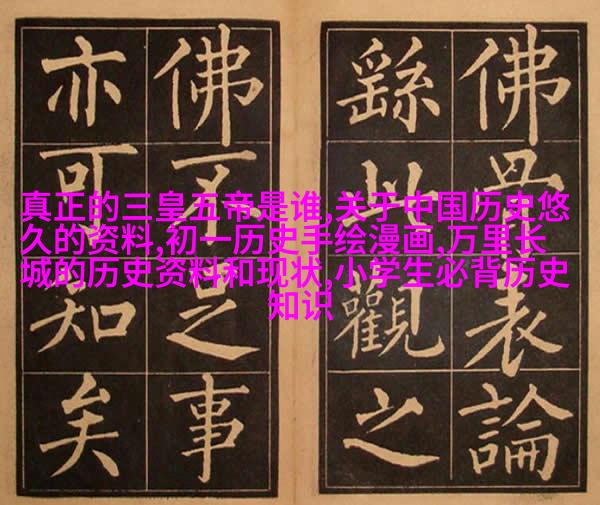 佛骨表論
繇此觀之
佛不足事
亦可知矣
真正的三皇五帝是谁,关于中国历史悠
久的资料,初一历史手绘漫画,万里长
城的历史资料和现状,小学生必背历史
知识